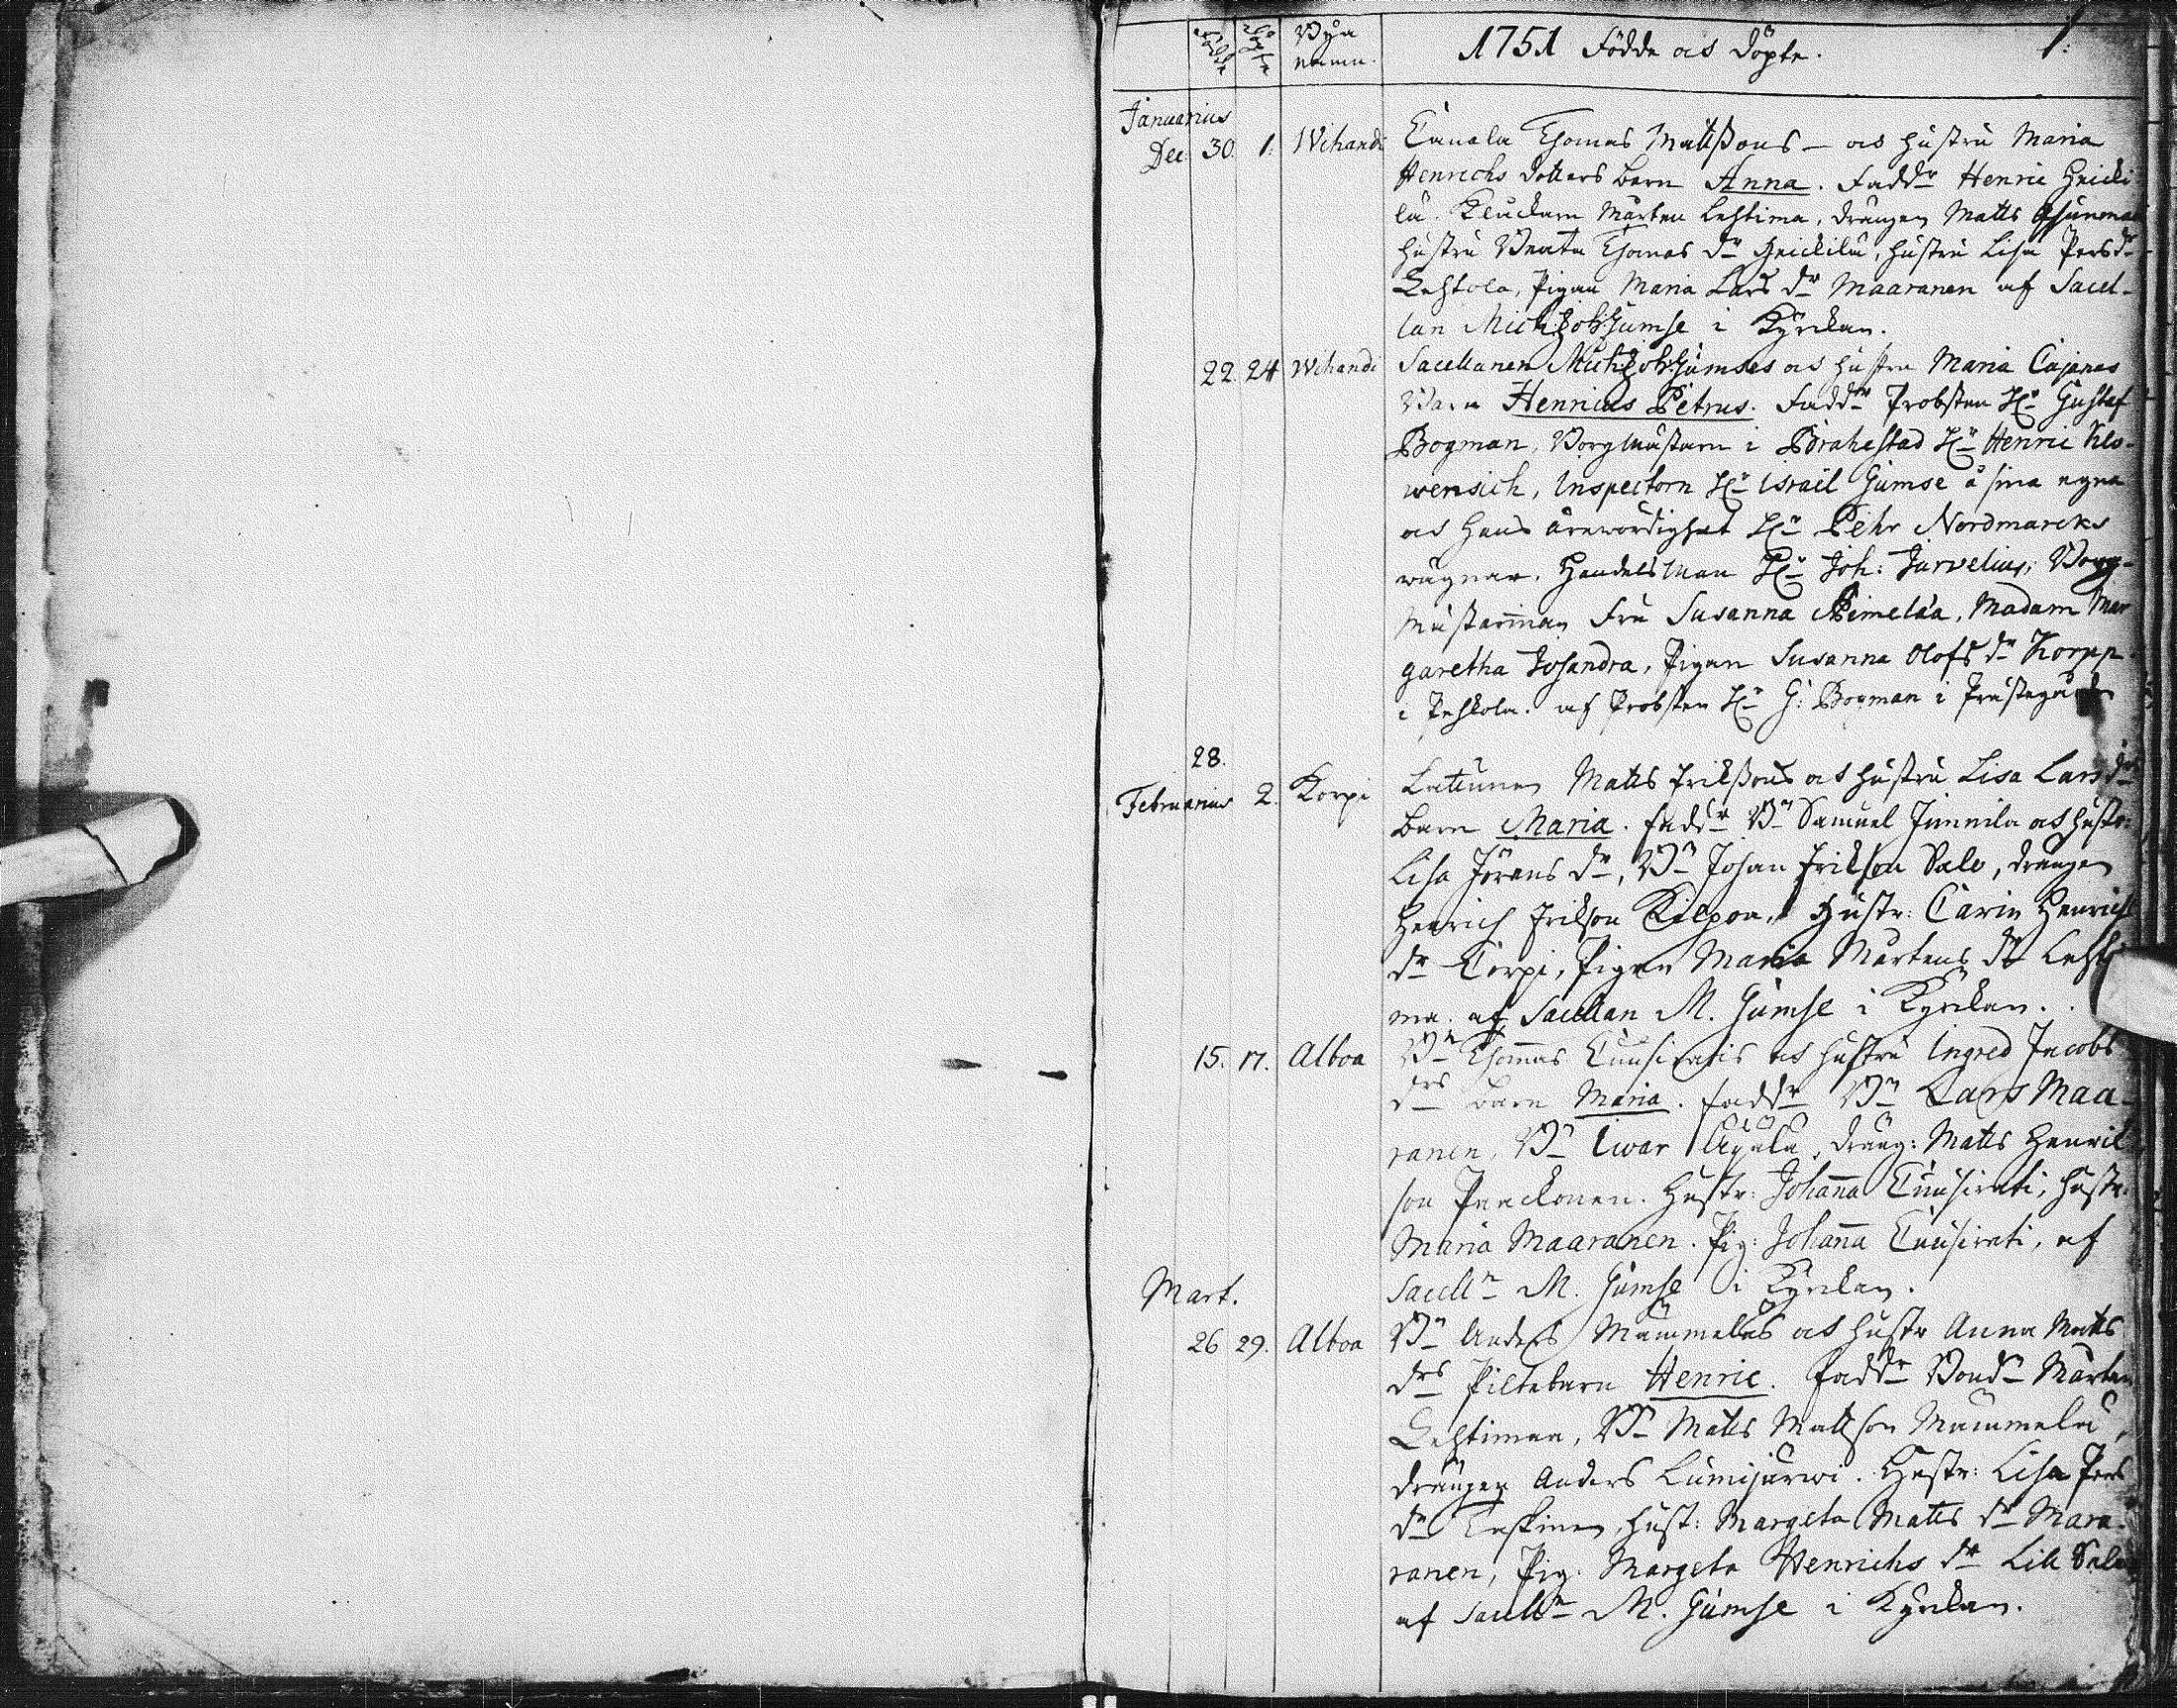 Födde Döpte Bya namn. 1751 Födde och döpte. 1.
Januarius
Dec: 30. 1. Wihandi Tanala Thomas Mattssons — och hustru Maria
Henrichs dotters barn Anna. Faddr Henric Heicki
lä. Kluckarn Mårten Lehtima, drängen Matts
hustru Beata Thomas dr Heickilä, hustru Lisa Persdr
Lehtola, Pigan Maria Lars dr Maaranen af Sacel-
lan Mich: Joh: Gumse i Kyrckan.
22. 24 Wihandi Sacellanen Mich: Joh: Gumses och hustru Maria Cajanas
Barn Henricus Petrus. Faddr Probsten Hr Gustaf
Bogman, Borgmästarn i Brahestad Hr Henric Klo-
wensich, Inspectorn Hr Israël Gumse å sina egna
och hans ärewördighet Hr Pehr Nordmarcks
wägnar. Handelsman Hr Joh: Jurvelius, Borg-
mästarinnan Fru Susanna Mimelia, Madam Mar
garetha Josandra, Pigan Susanna Olofs dr Korpp-
i Pehkola. af Probsten Hr G: Bogman i Prästegården
28.
Februarius 2. Korpi Lattunen Matts Erikssons och hustru Lisa Lars drs
barn Maria. faddr Bn Samuel Junnila och hustr:
Lisa Jörans dr, Bn Johan Erikson Salo, drängen
Henrich Erikson Kilpoa. Hustr: Carin Henrichs
dr Corpi, Pigan Maria Mårtens dr Lehti
ma. af Sacellan M. Gumse i Kyrckan.
15. 17. Alboa Bn Thomas Tuusiratis och hustru Ingred Jacobs
drs barn Maria. faddr Bn Lars Maa-
ranen, Bn Ivar Ayälä, dräng: Matts Henrik
son Paackonen. Hustr: Johanna Tuusirati, hustr:
Maria Maaranen. Pig: Johanna Tuusirati, af
Sacelln M. Gumse i Kyrckan.
Mart.
26 29. Alboa Bn Anders Mämmeläs och hustr Anna Matts
drs Piltebarn Henric. Faddr Bondn Mårten
Lehtimaa, Bn Matts Mattson Mämmelä,
drängen Anders Lumijärwi. Hustr: Lisa Pers
dr Laskinen, hust: Margeta Matts dr Maa-
ranen, Pig: Margeta Henrichs dr Lill Salo
af Sacelln M. Gumse i Kyrckan.